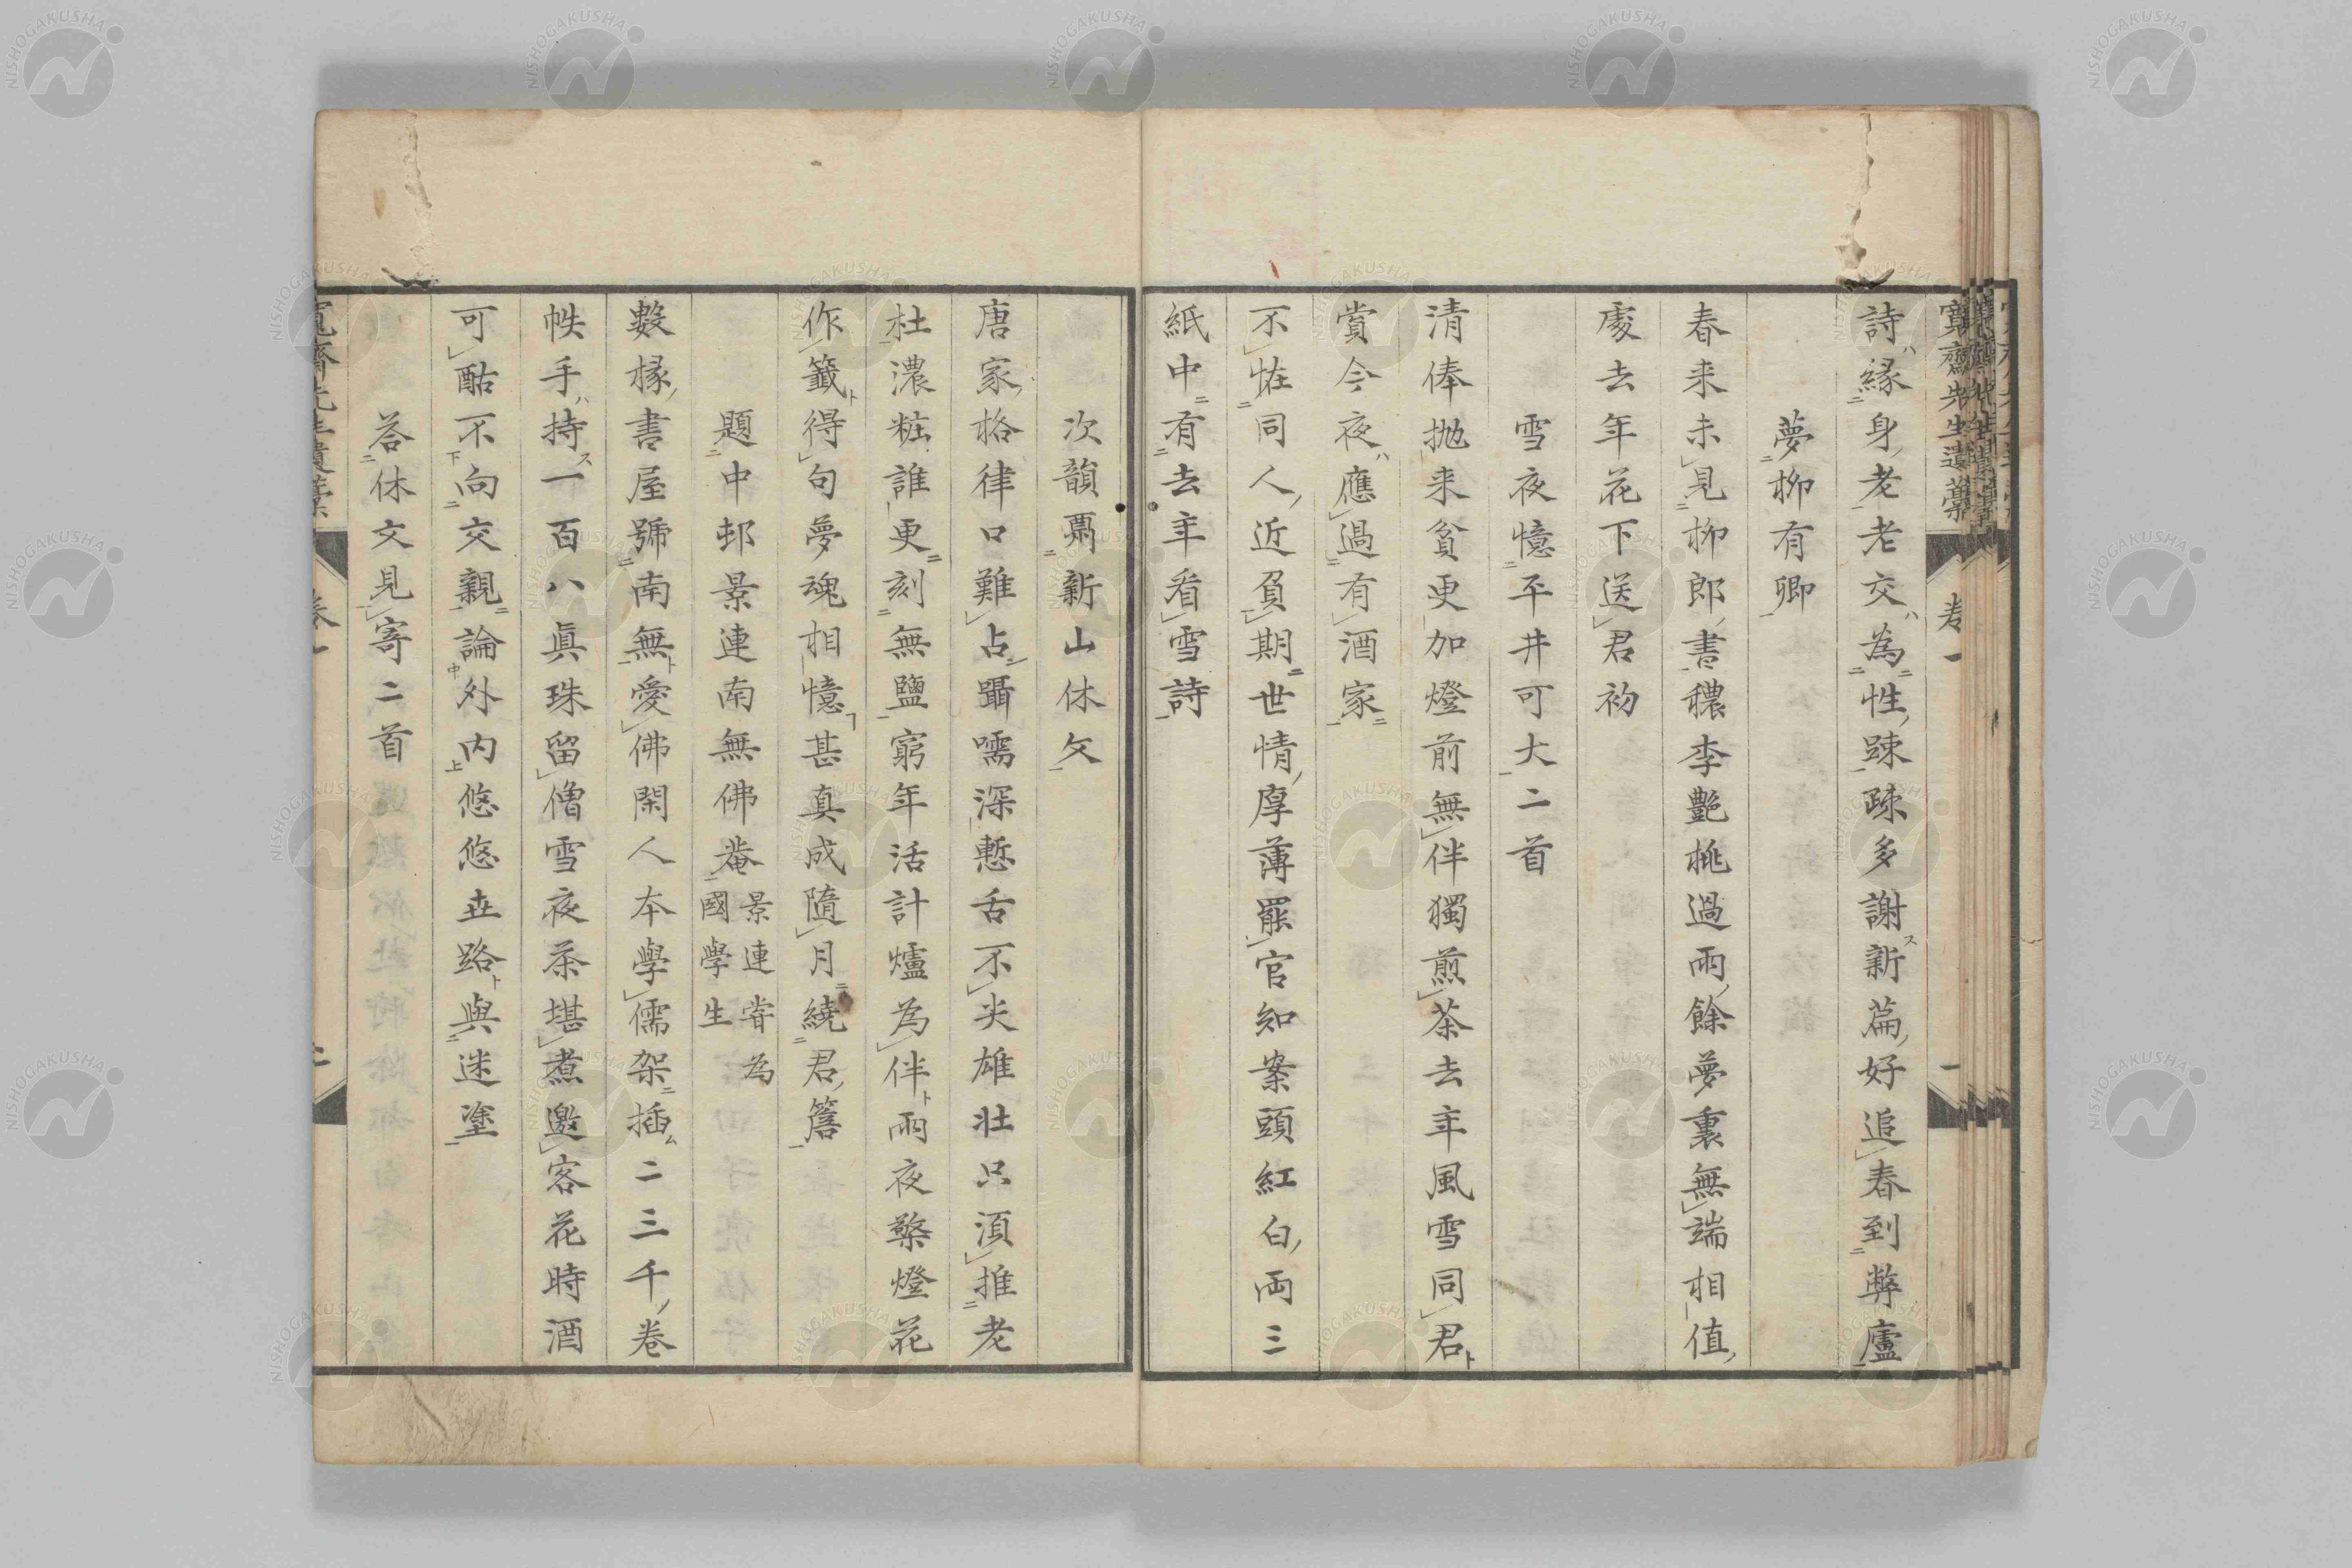 詩緣身老老交為性踈疎多謝新篇好追春到弊廬
夢柳有卿
春来未見柳郎書穠李艷桃過雨餘夢裏無端相值
處去年花下送君初
雪夜憶平井可大二首
清俸拋来貧更加燈前無伴獨煎茶去年風雪同君
賞今夜應過有酒家
不恠同人近負期世情厚薄罷官知案頭紅白両三
紙中有去年看雪詩
次韻鬲新山休文
唐家格律口難占躡嚅深慙舌不尖雄壮只湏推老
杜濃粧誰更刻無鹽窮年活計爐為伴雨夜檠燈花
作籤得句夢魂相憶甚真成隨月繞君簷
題中邨景連南無佛菴
景連嘗為
國學生
數椽書屋號南無愛佛閑人本學儒架插二三千卷
帙手持一百八眞珠留僧雪夜茶堪煮邀客花時酒
可酤不向交親論外内悠悠世路與迷塗
答休文見寄二首
寬齋先生遺藁
卷一
一
NISHOGAKUSHA